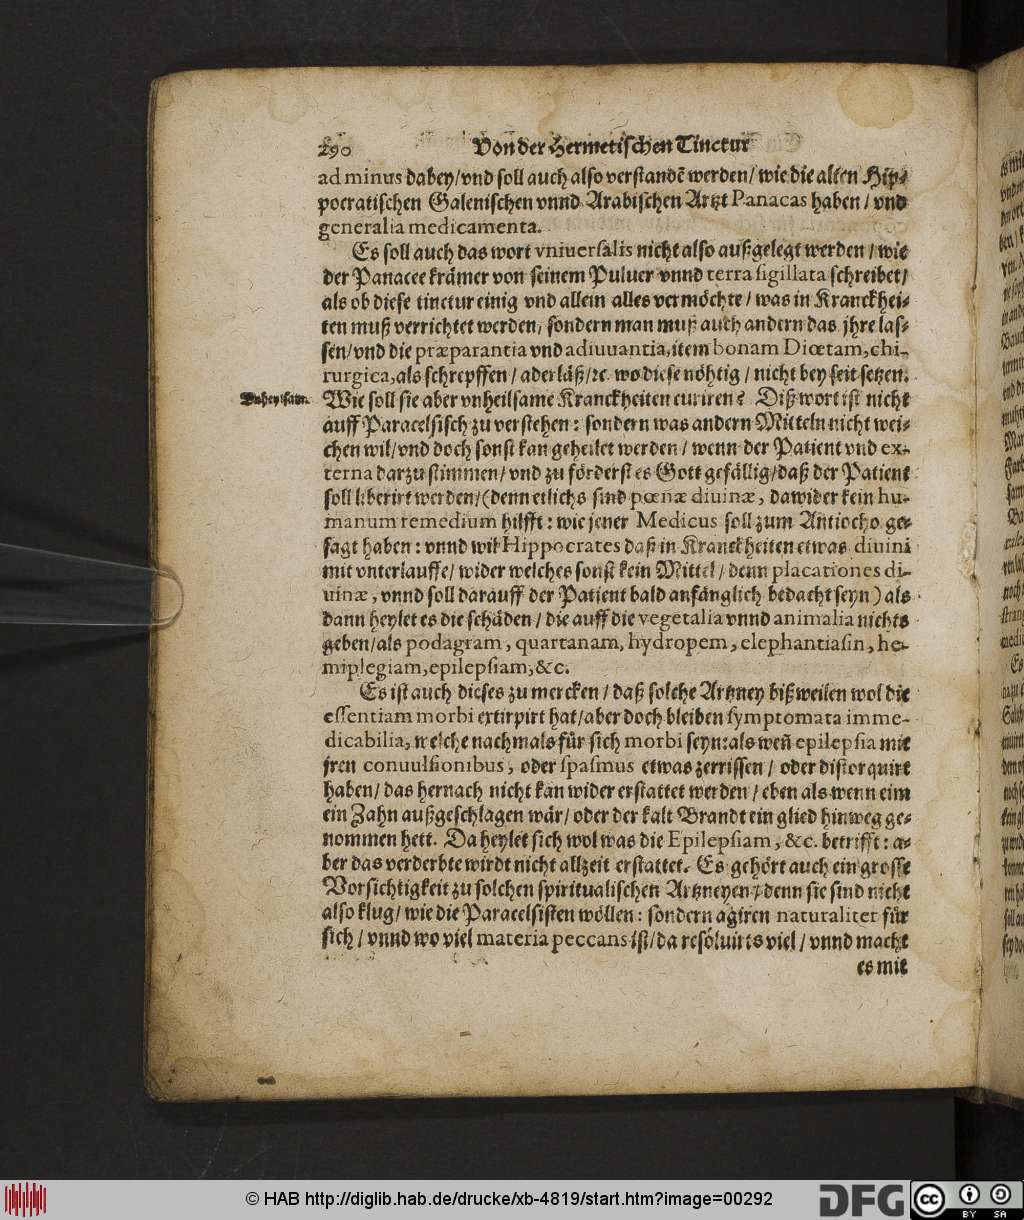 290 Von der Hermetischen Tinctur
ad minus dabey/vnd soll auch also verstandẽ werden/wie die alten Hip⸗
pocratischen Galenischen vnnd Arabischen Artzt Panacas haben/vnd
generalia medicamenta.
Es soll auch das wort vniuersalis nicht also außgelegt werden/wie
der Panacee krämer von seinem Puluer vnnd terra sigillata schreibet/
als ob diese tinctur einig vnd allein alles vermöchte/was in Kranckhei⸗
ten muß verrichtet werden, sondern man muß auch andern das jhre las⸗
sen/vnd die præparantia vnd adiuuantia, item bonam Diœtam, chi-
rurgica, als schrepffen/aderläß/ꝛc. wo diese nöhtig/nicht bey seit setzen.
Vnheylsam. Wie soll sie aber vnheilsame Kranckheiten curiren? Diß wort ist nicht
auff Paracelsisch zu verstehen: sondern was andern Mitteln nicht wei⸗
chen wil/vnd doch sonst kan geheilet werden/wenn der Patient vnd ex-
terna darzu stimmen/vnd zu förderst es Gott gefällig/daß der Patient
soll liberirt werden/(denn etlichs sind pœnæ diuinæ, dawider kein hu-
manum remedium hilfft: wie jener Medicus soll zum Antiocho ge⸗
sagt haben: vnnd wil Hippocrates daß in Kranckheiten etwas diuini
mit vnterlauffe/wider welches sonst kein Mittel/denn placationes di-
uinæ, vnnd soll darauff der Patient bald anfänglich bedacht seyn) als
dann heylet es die schäden/die auff die vegetalia vnnd animalia nichts
geben/als podagram, quartanam, hydropem, elephantiasin, he-
miplegiam, epilepsiam, &c.
Es ist auch dieses zu mercken/daß solche Artzney bißweilen wol die
essentiam morbi extirpirt hat/aber doch bleiben symptomata imme-
dicabilia, welche nachmals für sich morbi seyn: als weñ epilepsia mit
jren conuulsionibus, oder spasmus etwas zerrissen/oder distorquirt
haben/das hernach nicht kan wider erstattet werden/eben als wenn eim
ein Zahn außgeschlagen wär/oder der kalt Brandt ein glied hinweg ge⸗
nommen hett. Da heylet sich wol was die Epilepsiam, &c. betrifft: a⸗
ber das verderbte wirdt nicht allzeit erstattet. Es gehört auch ein grosse
Vorsichtigkeit zu solchen spiritualischen Artzneyen/denn sie sind nicht
also klug/wie die Paracelsisten wöllen: sondern agiren naturaliter für
sich/vnnd wo viel materia peccans ist/da resoluirts viel/vnnd macht
es mit
© HAB http://diglib.hab.de/drucke/xb-4819/start.htm?image=00292
DFG
cc BY SA